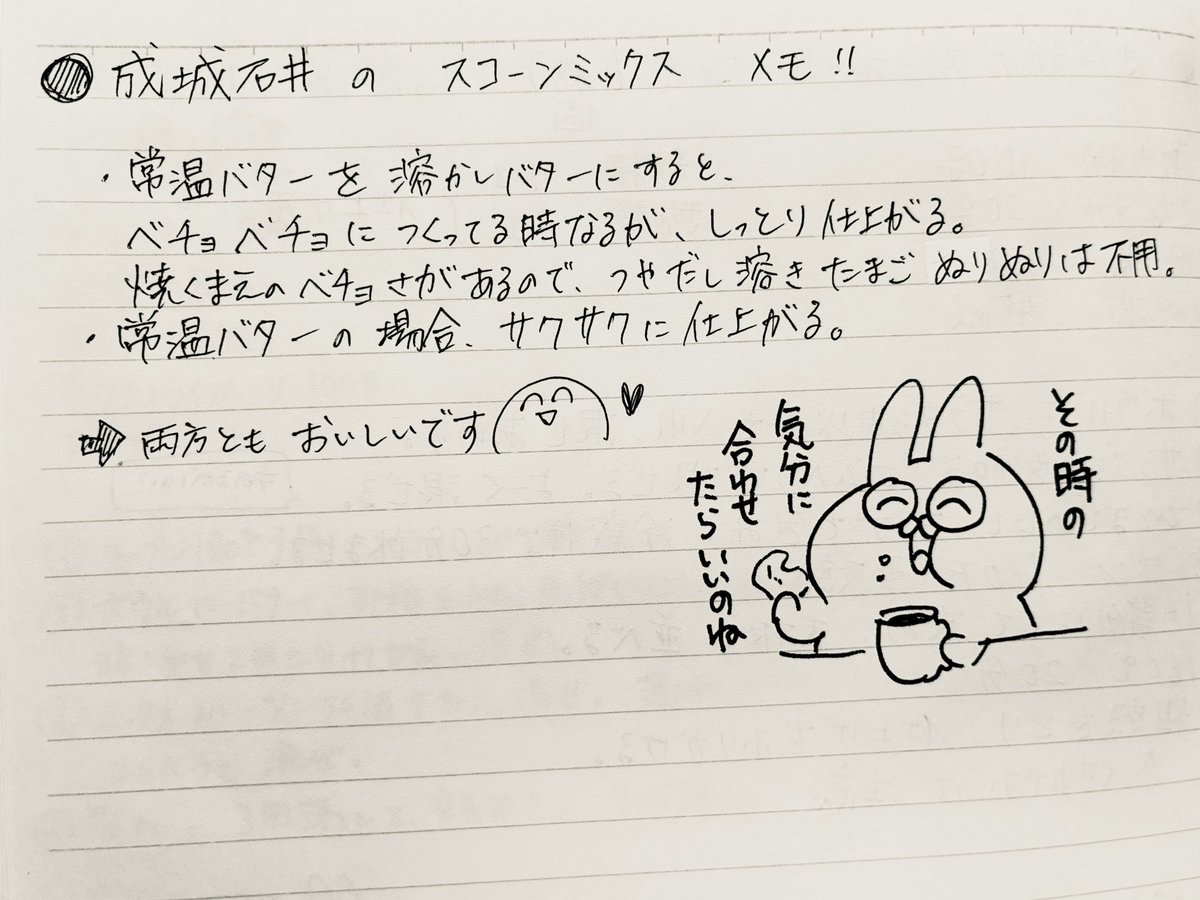 ● 成城石井の スコーンミックス メモ!!
・常温バターを溶かしバターにすると、
ベチョベチョにつくってる時なるが、しっとり仕上がる。
焼くまえのベチョさがあるので、つやだし溶きたまごぬりぬりは不用。
・常温バターの場合、サクサクに仕上がる。
➡ 両方ともおいしいです
その時の
気分に
合わせ
たらいいのね